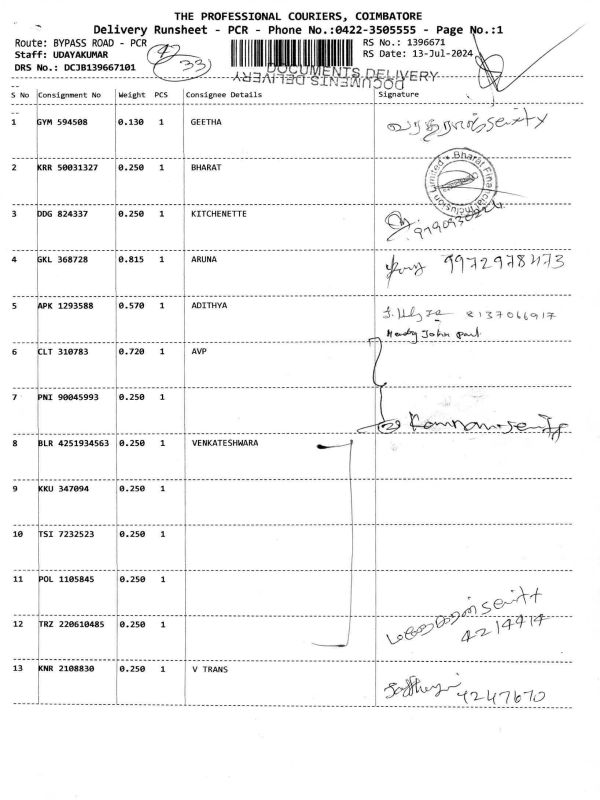 THE PROFESSIONAL COURIERS, COIMBATORE
Delivery Runsheet - PCR - Phone No.:0422-3505555 - Page No.:1
Route: BYPASS ROAD - PCR
RS No.: 1396671
Staff: UDAYAKUMAR
RS Date: 13-Jul-2024
DRS No.: DCJB139667101
33
DOCUMENTS DELIVERY
DOCUMENTS DELIVERY
S No Consignment No Weight PCS Consignee Details Signature
1 GYM 594508 0.130 1 GEETHA
2 KRR 50031327 0.250 1 BHARAT
Bharat Financial Inclusion Limited
3 DDG 824337 0.250 1 KITCHENETTE
4 GKL 368728 0.815 1 ARUNA 9972978473
5 APK 1293588 0.570 1 ADITHYA 8137066917
John Paul
6 CLT 310783 0.720 1 AVP
7 PNI 90045993 0.250 1
8 BLR 4251934563 0.250 1 VENKATESHWARA
9 KKU 347094 0.250 1
10 TSI 7232523 0.250 1
11 POL 1105845 0.250 1
12 TRZ 220610485 0.250 1
4214414
13 KNR 2108830 0.250 1 V TRANS
4247670